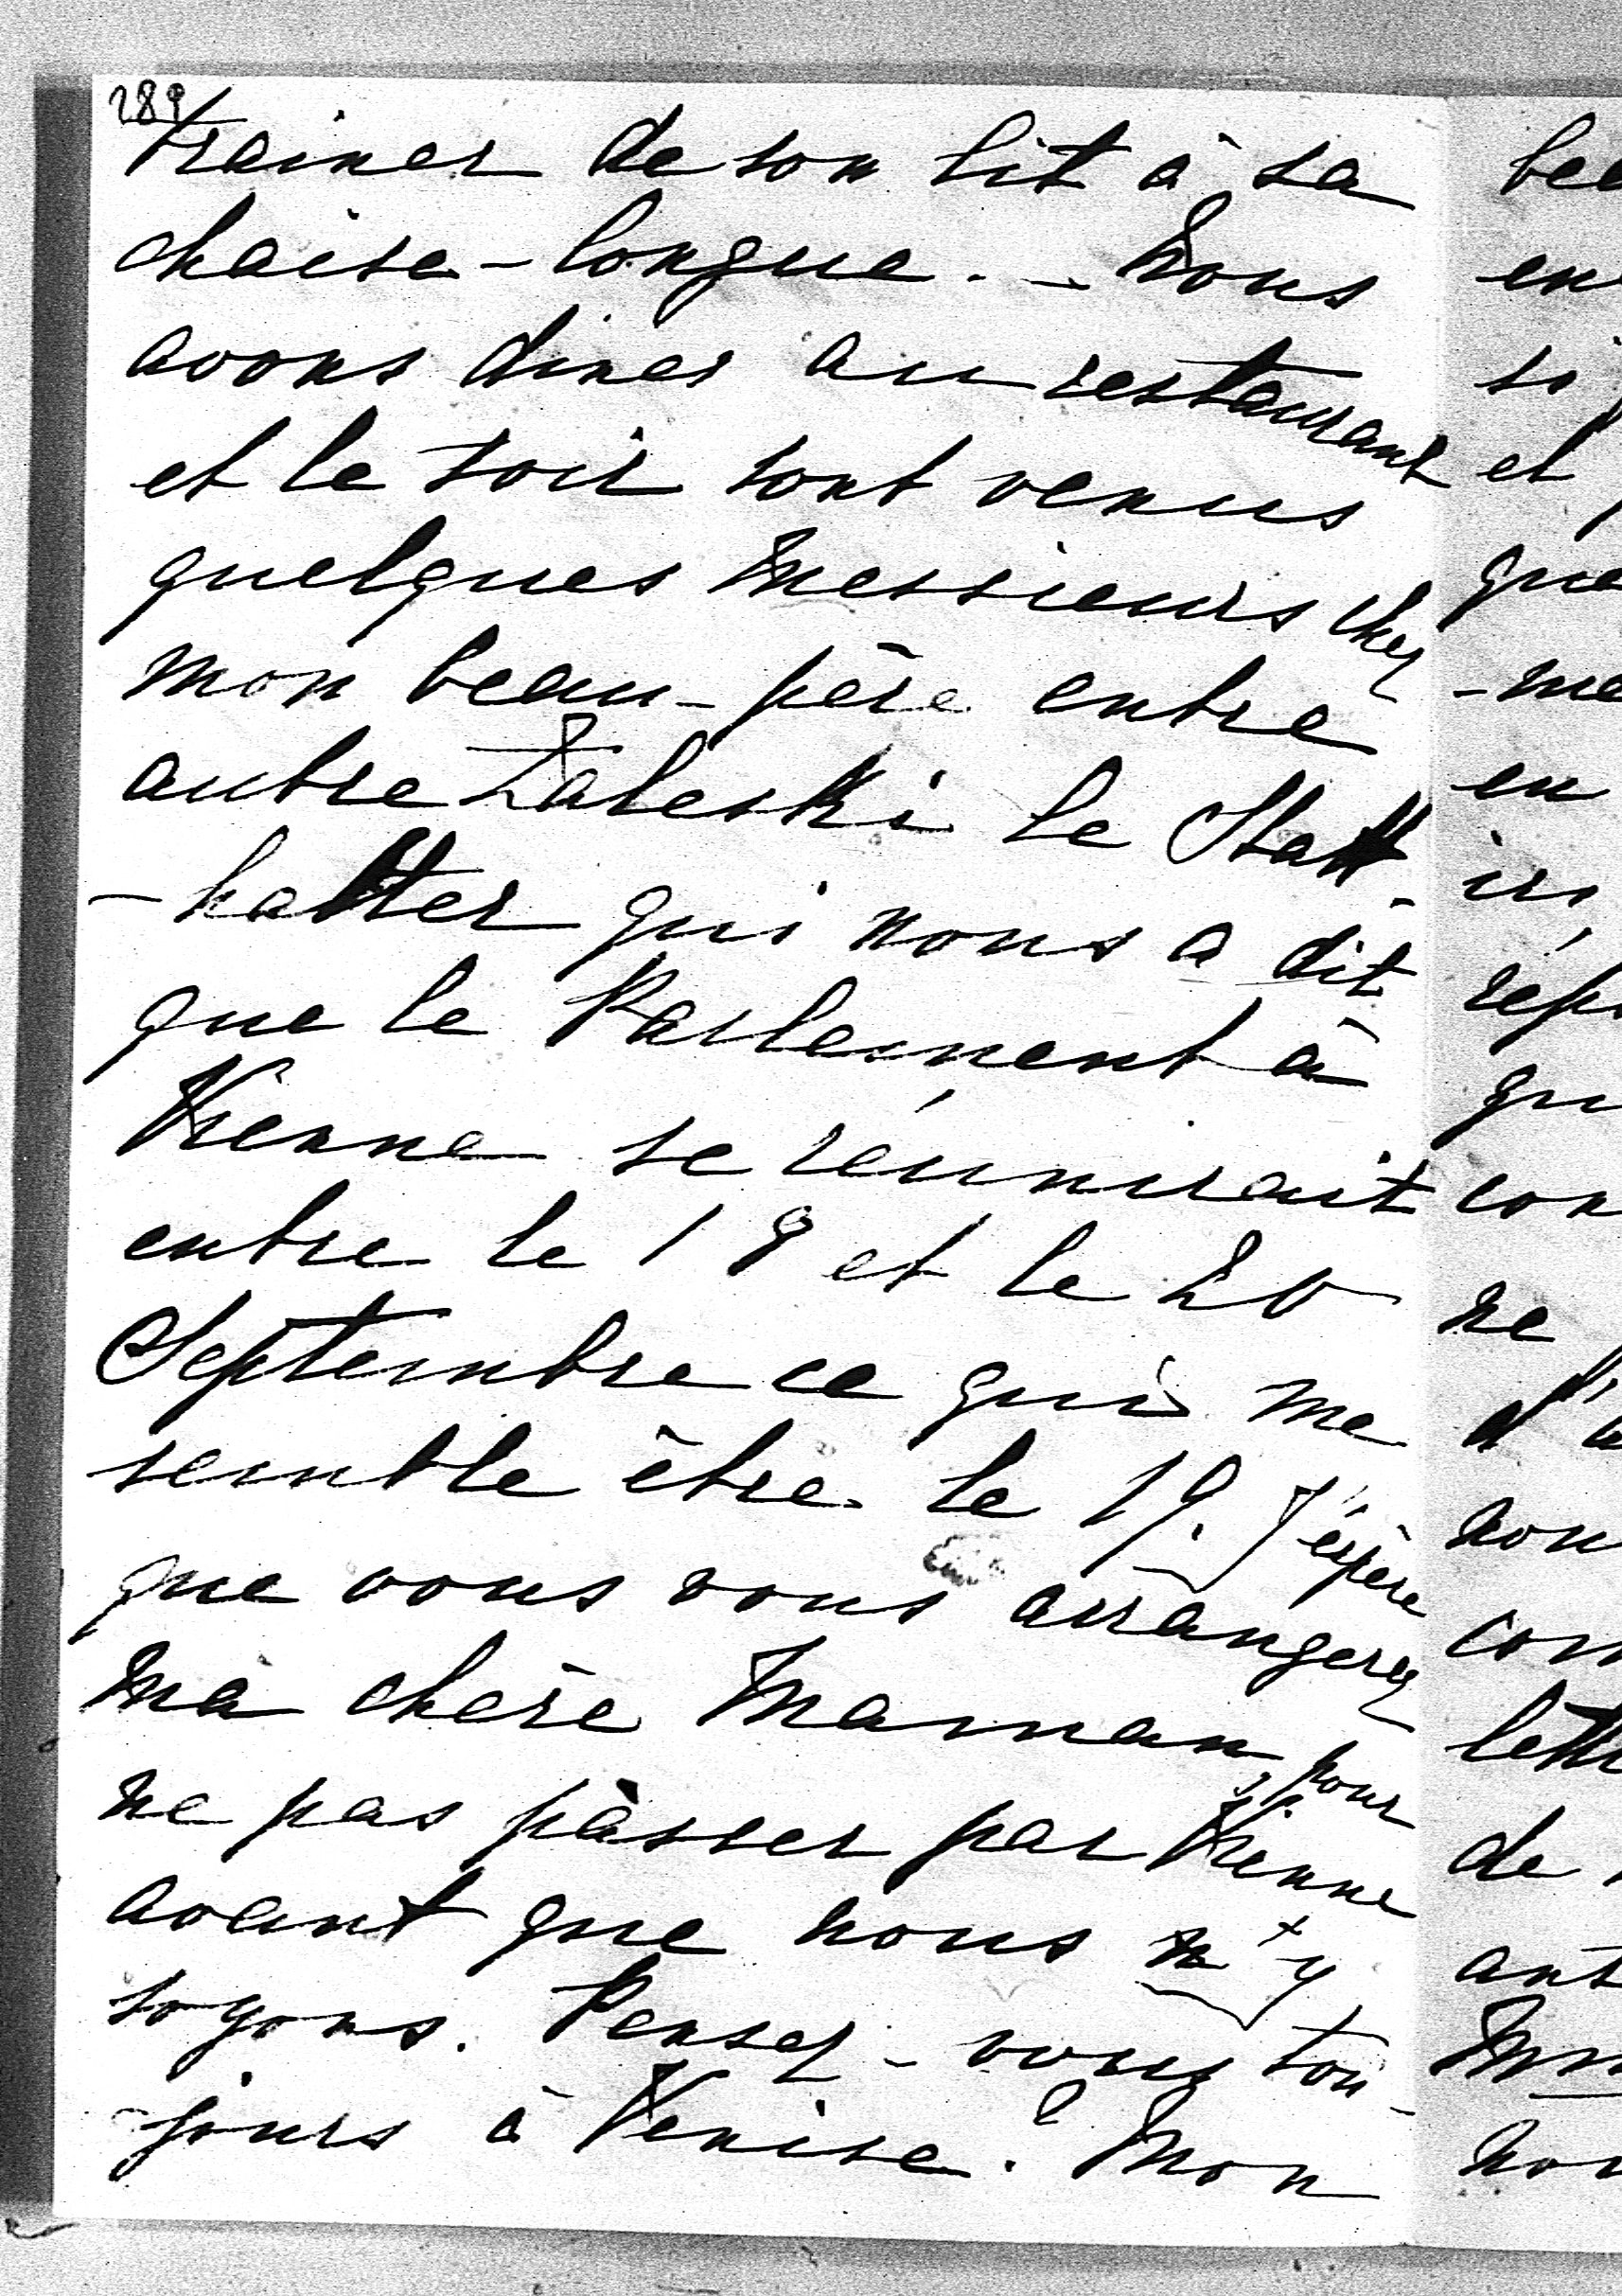 289
trainer de son lit à sa
chaise-longue. – Nous
avons diner au restaurant
et le soir sont venus
quelques Messieurs chez
mon beau-père entre
autre Zaleski le Statt-
-halter qui nous a dit
que le Parlement à
Vienne se réunirait
entre le 18 et le 20
Septembre ce qui me
semble être le 19. J'éspère
que vous vous arrangerez
ma chère Maman, pour
ne pas pàsser par Vienne
avant que nous n'y
soyons. Pensez-vous tou-
-jours à Venise? Mon